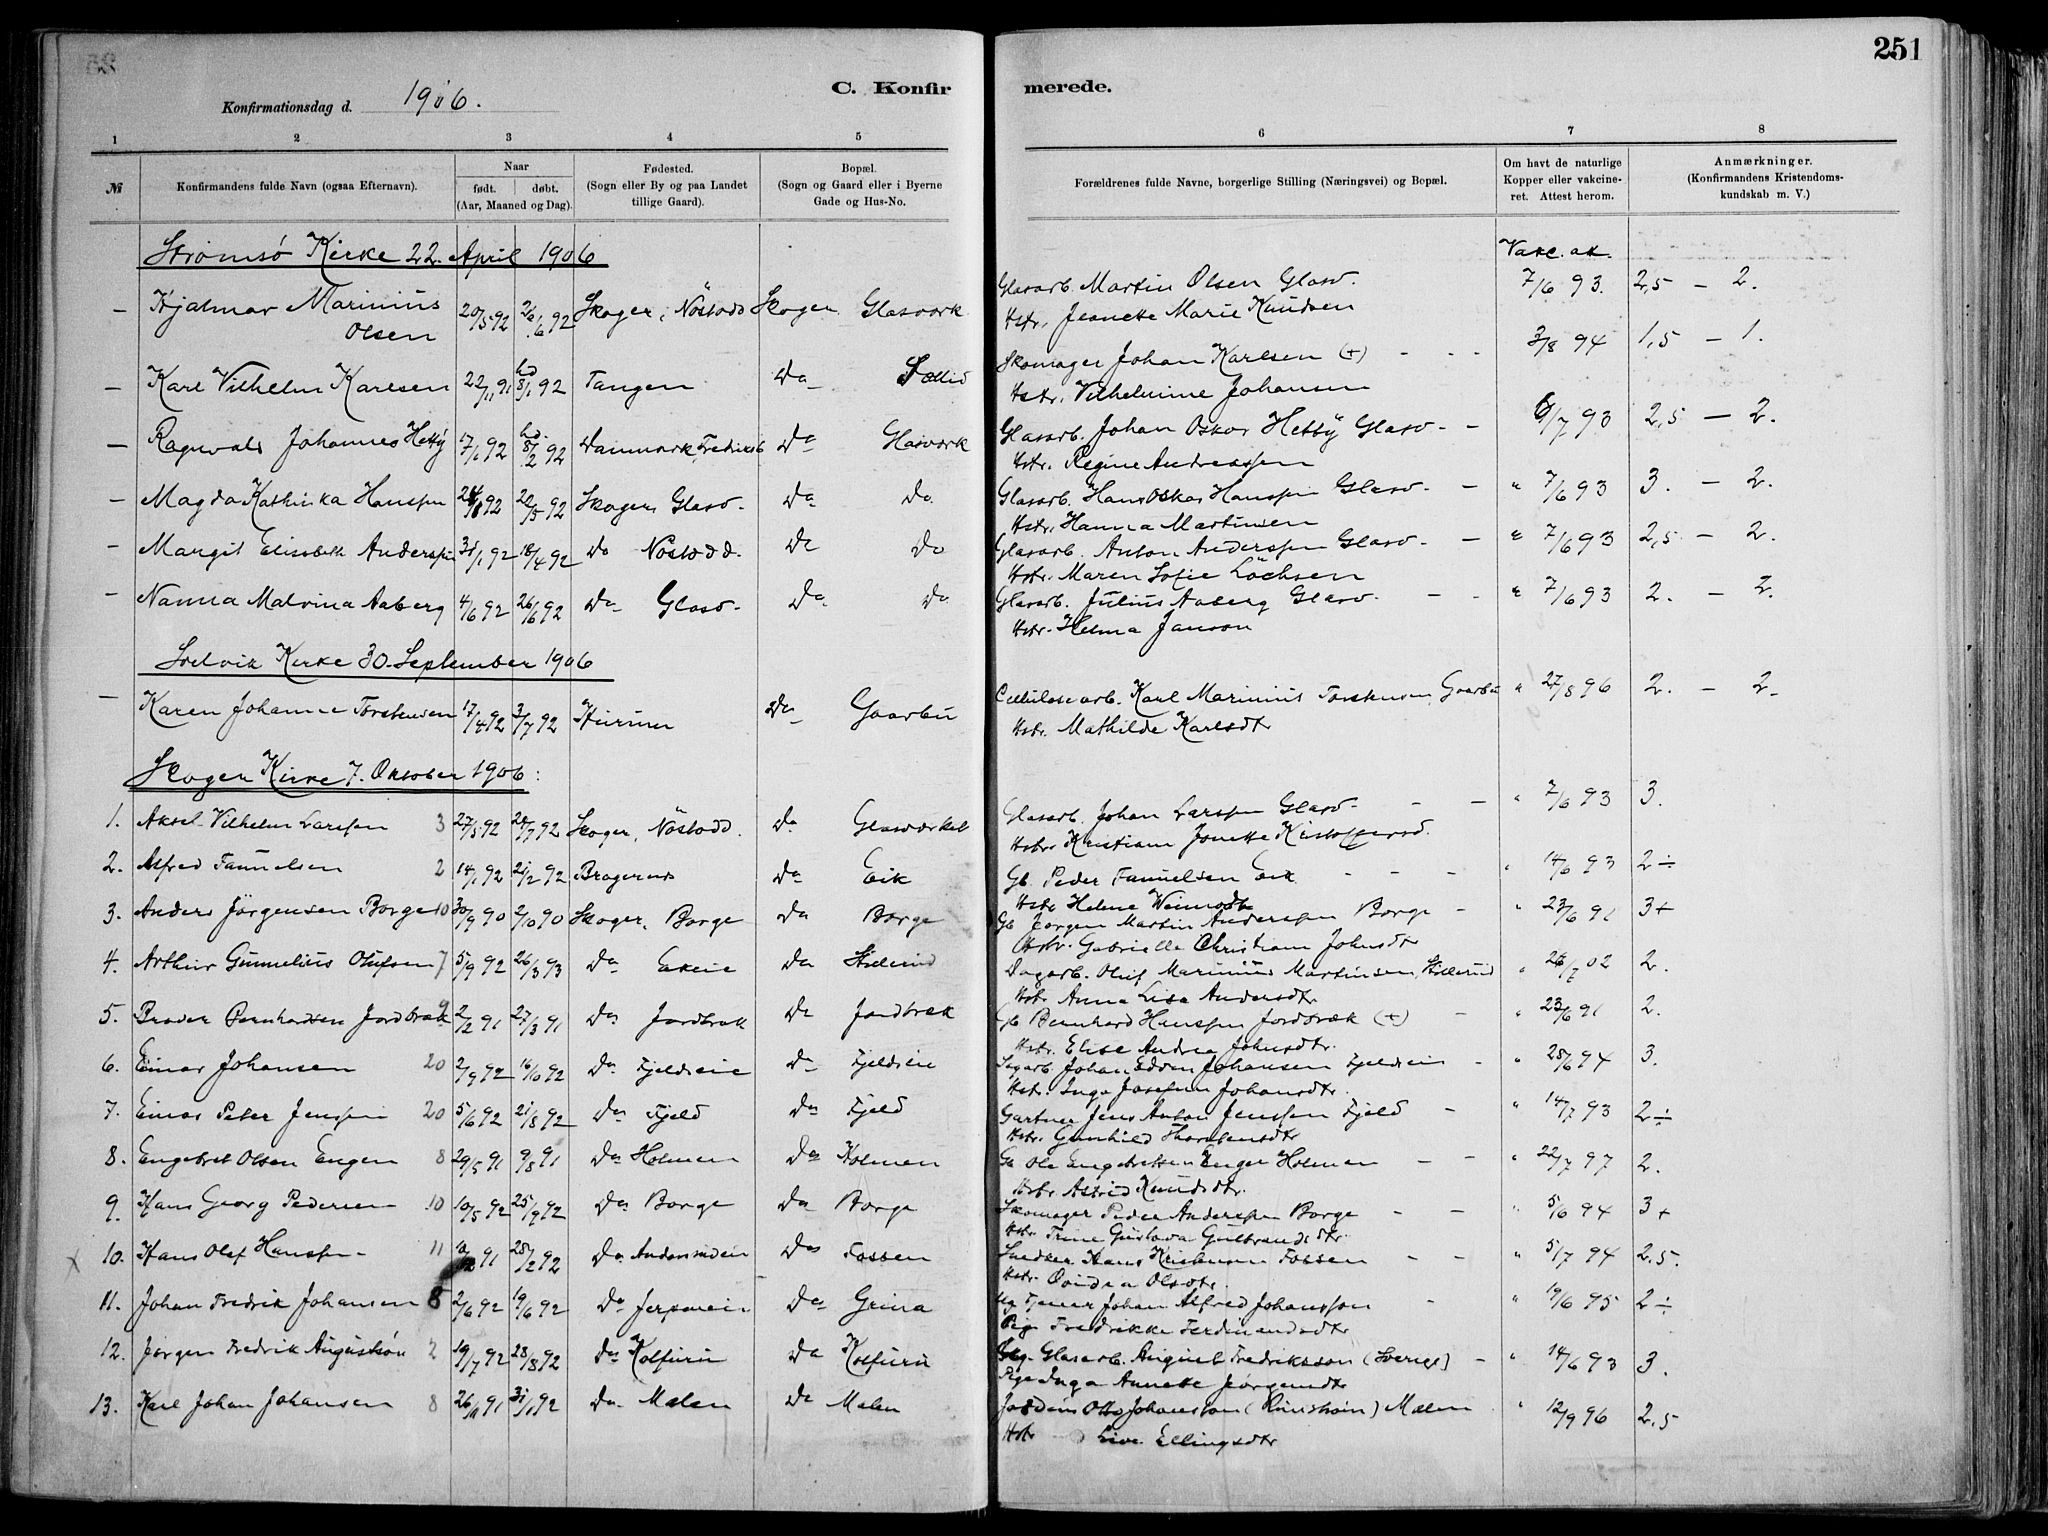 251
Konfirmationsdag d. 1906.
C. Konfirmerede.
1 2 3 4 5 6 7 8
№ Konfirmandens fulde Navn (ogsaa Efternavn). Naar født. døbt. (Aar, Maaned og Dag). Fødested. (Sogn eller By og paa Landet tillige Gaard). Bopæl. (Sogn og Gaard eller i Byerne Gade og Hus-No. Forældrenes fulde Navne, borgerlige Stilling (Næringsvei) og Bopæl. Om havt de naturlige Kopper eller vakcineret. Attest herom. Anmærkninger. (Konfirmandens Kristendomskundskab m. V.)
Strømsø Kirke 22. April 1906
Vakc. at.
- Hjalmar Marinius Olsen 20/5 92 26/6 92 Skoger, Nöstodd Skoger Glasværk Glasarb. Martin Olsen Glasv. 7/6 93. 2,5 - 2.
Hstr. Jeanette Marie Knudsen
- Karl Vilhelm Karlsen 22/11 91 hd 8/1 92 Tangen Do Skomager Johan Karlsen (+) - - - 3/8 94 1,5 - 1.
Hstr. Vilhelmine Johansen
- Ragnvald Johannes Hetty 17/1 92 hd. 8/2 92 Danmark, Do Glasværk Glasarb. Johan Oskar Hetty Glasv - - 6/7 93 2,5 - 2.
Hstr. Regine Andreassen
- Magda Kathinka Hanssen 20/5 92 Skoger, Glasv. Do Do Glasarb. Hans Oskar Hanssen Glasv. - " 7/6 93 3. - 2.
Hstr. Hanna Martinsen
- Margit Elisabeth Anderssen 31/1 92 18/4 92 Do Nöstodd. Do Do Glasarb. Anton Anderssen Glasv. - " 7/6 93 2,5 - 2.
Hstr. Maren Sofie Löchsen
- Nanna Malvina Aaberg 4/6 92 26/6 92 Do Glasv. Do Do Glasarb. Julius Aaberg Glasv. - - " 7/6 93 2. - 2.
Hstr. Helma Janson
Svelvik Kirke 30. September 1906
- Karen Johanne Torstensen 17/4 92 3/7 92 Hurum Do Gaarbu Cellulosearb. Karl Marinius Torstensen, Gaarbu " 27/8 96 2. - 2.
Hstr. Mathilde Karlsdtr
Skoger Kirke 7. Oktober 1906:
1. Aksel Vilhelm Larssen 3 27/5 92 24/7 92 Skoger, Nöstodd. Do Glasværket Glasarb. Johan Larssen Glasv. - - " 7/6 93 3.
Hstr. Kristiane Jonette Kristoffersd.
2. Alfred Fannelsen 2 14/1 92 21/2 92 Bragernes Do Eik Gb. Peder Fannelsen Eik - - - " 14/6 93 2 ÷
Hstr. Helene
3. Anders Jörgensen Borge 10 30/9 90 2/10 90 Skoger, Borge Do Borge Gb Jörgen Martin Anderssen Borge - " 23/6 91 3+
Hstr. Gabrielle Christiane Johnsdtr
4. Arthur Gunnelius Olufsen 7 5/9 92 26/3 93 Do Ekeie Do Stillerud Dagarb. Oluf Marinius Martinsen, Stillerud " 26/7 02 2.
Hstr Anna Lise Andersdtr
5. Brader Bernhardsen Jordbræk 9 2/2 91 27/3 91 Do Jordbræk Do Jordbræk Gb Bernhard Hanssen Jordbræk (+) - " 23/6 91 2.
Hstr. Elise Andrea Johnsdtr.
6. Einar Johansen 20 2/9 92 16/10 92 Do Fjeldseie Do Fjeldseie Sagarb. Johan Edvin Johansen Fjeldseie - " 28/6 94 3.
Hstr. Inga Josefine Johansdtr.
7. Einar Peter Jenssen 20 5/6 92 21/8 92 Do Fjeld Do Fjeld Gartner Jens Anton Jenssen Fjeld - " 14/7 93 2 ÷
Hstr. Gunhild
8. Engebret Olsen Engen 8 29/5 91 9/8 91 Do Holmen Do Holmen Gb Ole Engebretsen Engen Holmen - - " 22/7 97 2.
Hstr Astrid Knudsdtr.
9. Hans Georg Pedersen 10 10/5 92 25/9 92 Do Borge Do Borge Skomager Peder Anderssen Borge - - " 5/6 94 3+
Hstr. Trine Gustava Gulbrandsdtr.
x 10. Hans Olaf Hanssen 11 28/2 92 Do Andorsrudeie Do Fossen Snedker Hans Kristensen Fossen - - " 5/7 94 2.5.
Hstr. Olsdtr.
11. Johan Fredrik Johansen 8 2/6 92 19/6 92 Do Do Grina Ug. Tjener Johan Alfred Johansson - " 19/6 95 2 ÷
Pige Fredrikke Ferdinandsdtr
12. Jørgen Fredrik Augustsøn 2 19/7 92 28/8 92 Do Kolfuru Do Kolfuru Ug. Glasarb. August Fredriksson (Sverige) - " 14/6 93 3.
Pige Inga Annette Jørgensdtr
13. Karl Johan Johansen 8 31/1 92 Do Malen Do Malen Otto Johansson Malen " 12/9 96 2.5
Hstr Live Ellingsdtr